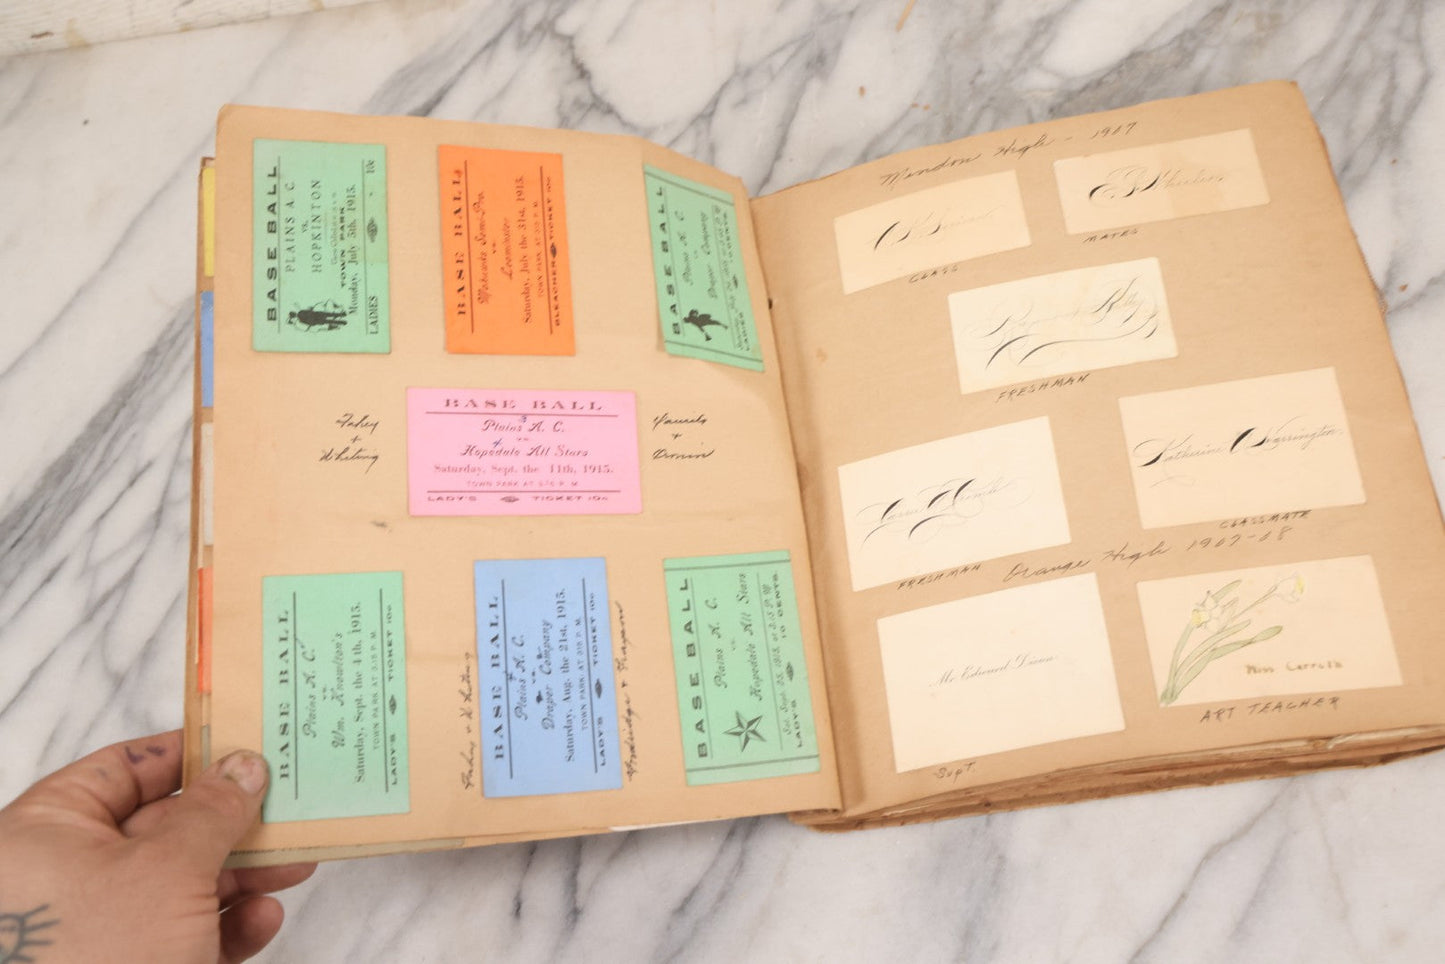 BASE BALL
PLAINS A C.
vs.
HOPKINTON
TOWN PARK
Monday, July 5th, 1915.
LADIES 10c
BASE BALL
Mohawks Semi-Pro.
vs.
Leominster
Saturday, July the 31st, 1915.
TOWN PARK AT 3.15 P. M.
BLEACHER TICKET 10c
BASE BALL
Plains A. C.
vs.
Draper Company
LADIES 10 CENTS
Fahey
+
Whiting
BASE BALL
3
Plains A. C.
vs
4
Hopedale All Stars
Saturday, Sept. the 11th, 1915.
TOWN PARK AT 3.15 P. M
LADY'S TICKET 10c
+
BASE BALL
Plains A. C.
vs.
Wm. Knowlton's
Saturday, Sept. the 4th, 1915.
TOWN PARK AT 3.15 P. M.
LADY'S TICKET 10c
Fahey + Whiting
BASE BALL
Plains A. C.
vs
Draper Company
Saturday, Aug. the 21st, 1915.
TOWN PARK, AT 3.15 P. M.
LADY'S TICKET 10c
BASE BALL
Plains A. C.
vs.
Hopedale All Stars
Sat. Sept. 25, 1915, at 3.15 P. M
LADY'S 10 CENTS.
Mendon High - 1907
CLASS
MATES
Raymond Kelley
FRESHMAN
FRESHMAN
Katherine C Warrington.
CLASSMATE
Orange High 1907-08
Mr. Edward Dixon.
SUPT.
Miss Carroll
ART TEACHER